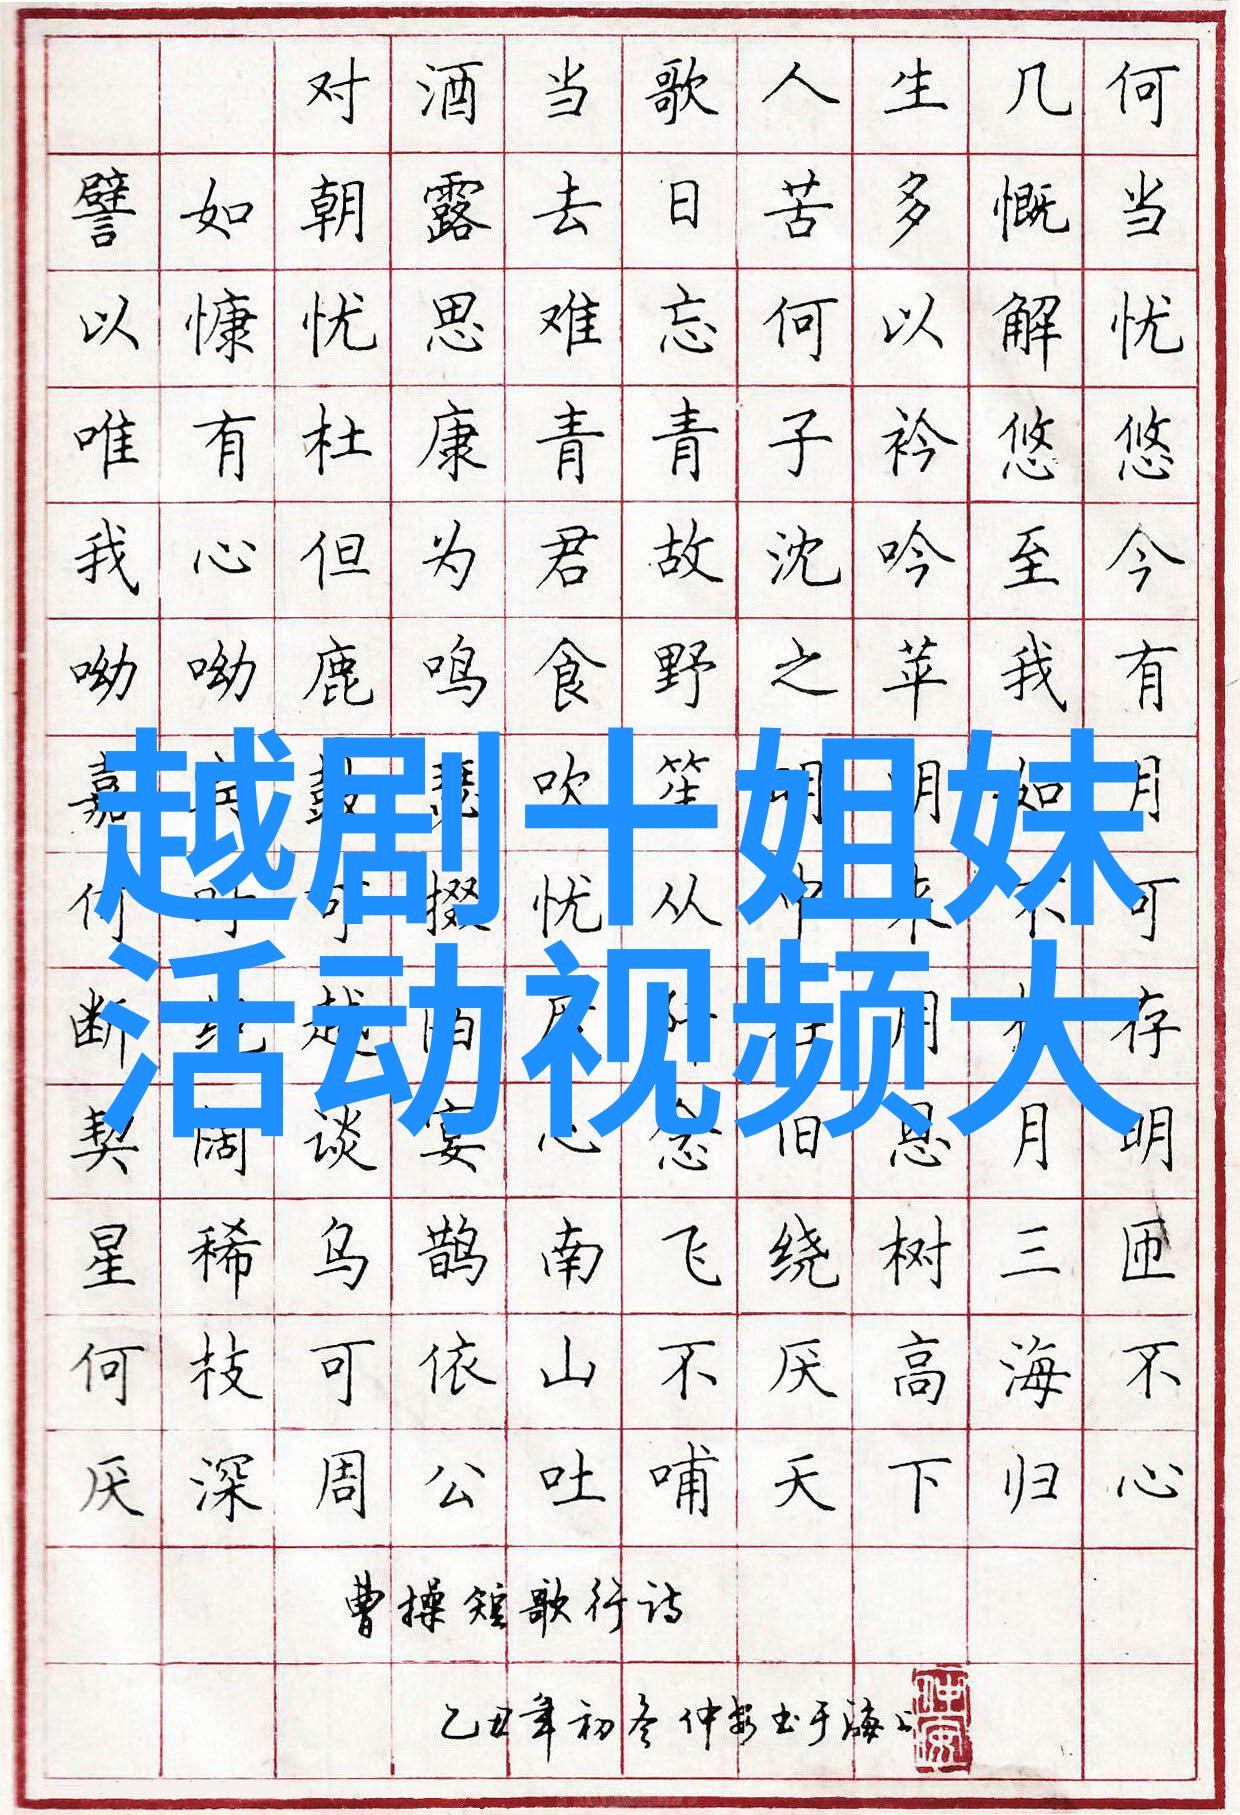 对酒当歌人生几何
譬如朝露去日苦多慨当
以慷忧思难忘何以解忧
唯有杜康青青子衿悠悠
我心但为君故沈吟至今
呦呦鹿鸣食野之苹我有
嘉鼓瑟吹笙明明如月
越剧十姐妹
何时可掇忧从中来不可
活动视频大
断绝越陌度阡用存
契阔谈宴心念旧恩月明
星稀乌鹊南飞绕树三匝
何枝可依山不厌高海不
厌深周公吐哺天下归心
曹操短歌行诗
乙丑年初冬仲安书于海上
仲安